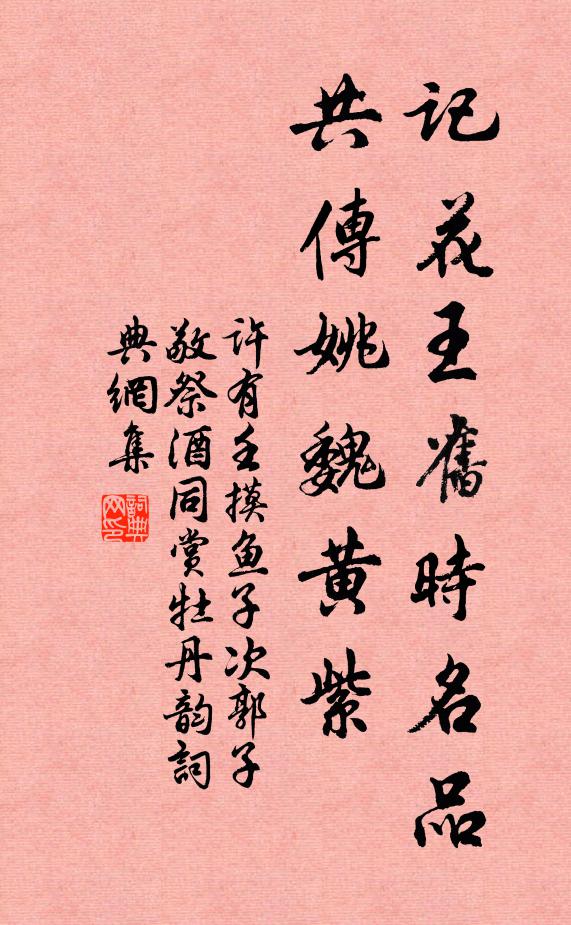 記花王舊時名品
共傳姚魏黃紫
许有壬摸鱼子次郭子
敬祭酒同賞牡丹韵詞
典網集
詞典网印